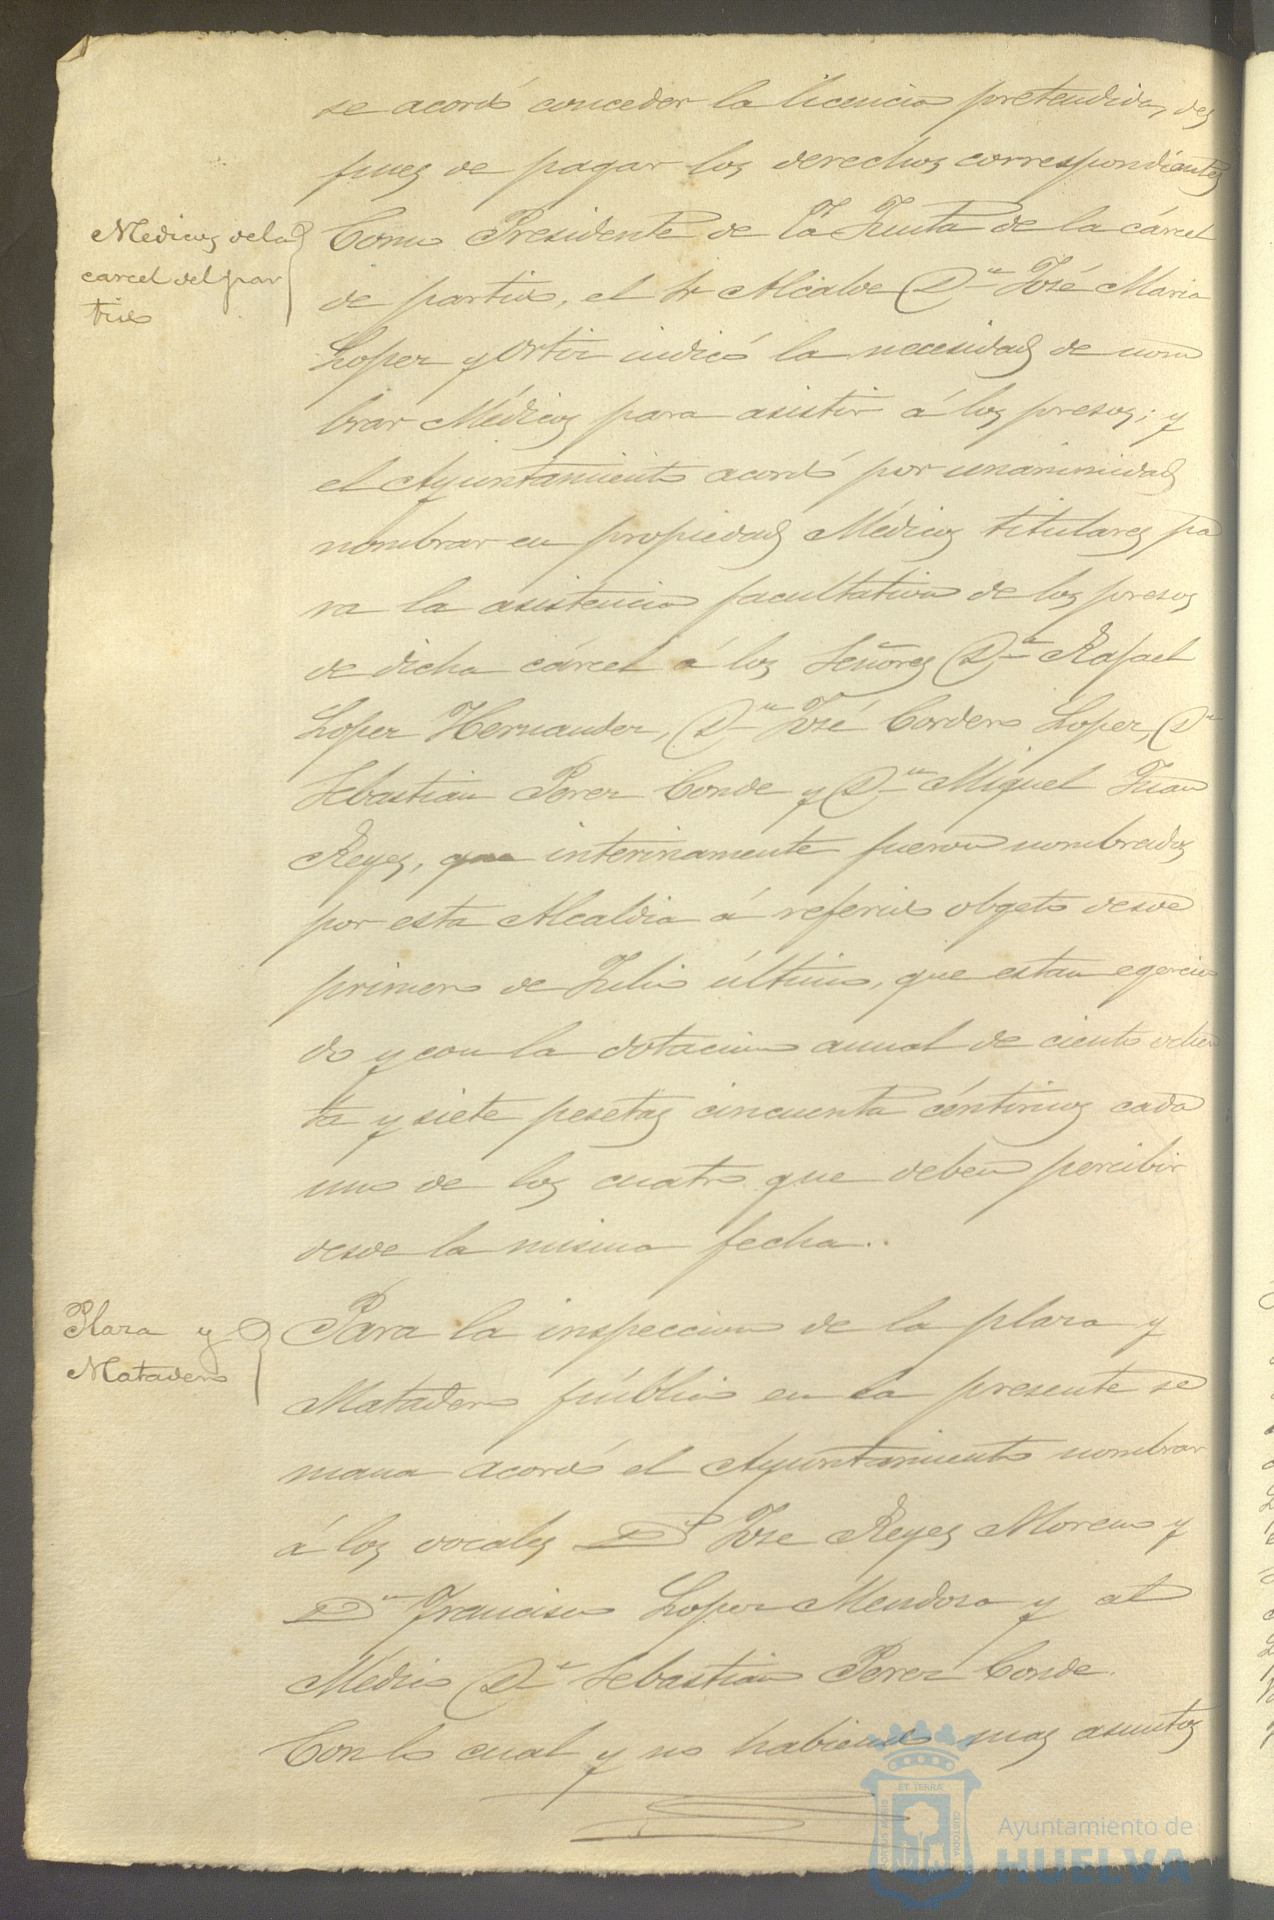 se acordó conceder la licencia pretendida, des
pues de pagar los derechos correspondientes
Medicos de la
carcel del par
tido
Como Presidente de la Junta de la cárcel
de partido, el Sr Alcalde Dn José Maria
Lopez y Ortiz indicó la necesidad de nom
brar Médicos para asistir á los presos; y
el Ayuntamiento acordó por unanimidad
nombrar en propiedad Médicos titulares pa
ra la asistencia facultativa de los presos
de dicha cárcel á los Señores Dn Rafael
Lopez Hernandez, Dn José Cordero Lopez, Dn
Sebastian Perez Conde y Dn Miguel Juan
Reyes, que interinamente fueron nombrados
por esta Alcaldia á referido obgeto desde
primero de Julio último, que estan egercien
do y con la dotacion anual de ciento ochen
ta y siete pesetas cincuenta céntimos cada
uno de los cuatro que deben percibir
desde la misma fecha..
Plaza y
Matadero
Para la inspeccion de la plaza y
Matadero público en la presente se
mana acordó el Ayuntamiento nombrar
á los vocales Dn Jose Reyes Moreno y
Dn Francisco Lopez Mendoza y al
Medico Dn Sebastian Perez Conde.
Con lo cual y no habiendo mas asuntos
ET TERRA
CUSTODIA
PORTUS MARIS
Ayuntamiento de
HUELVA